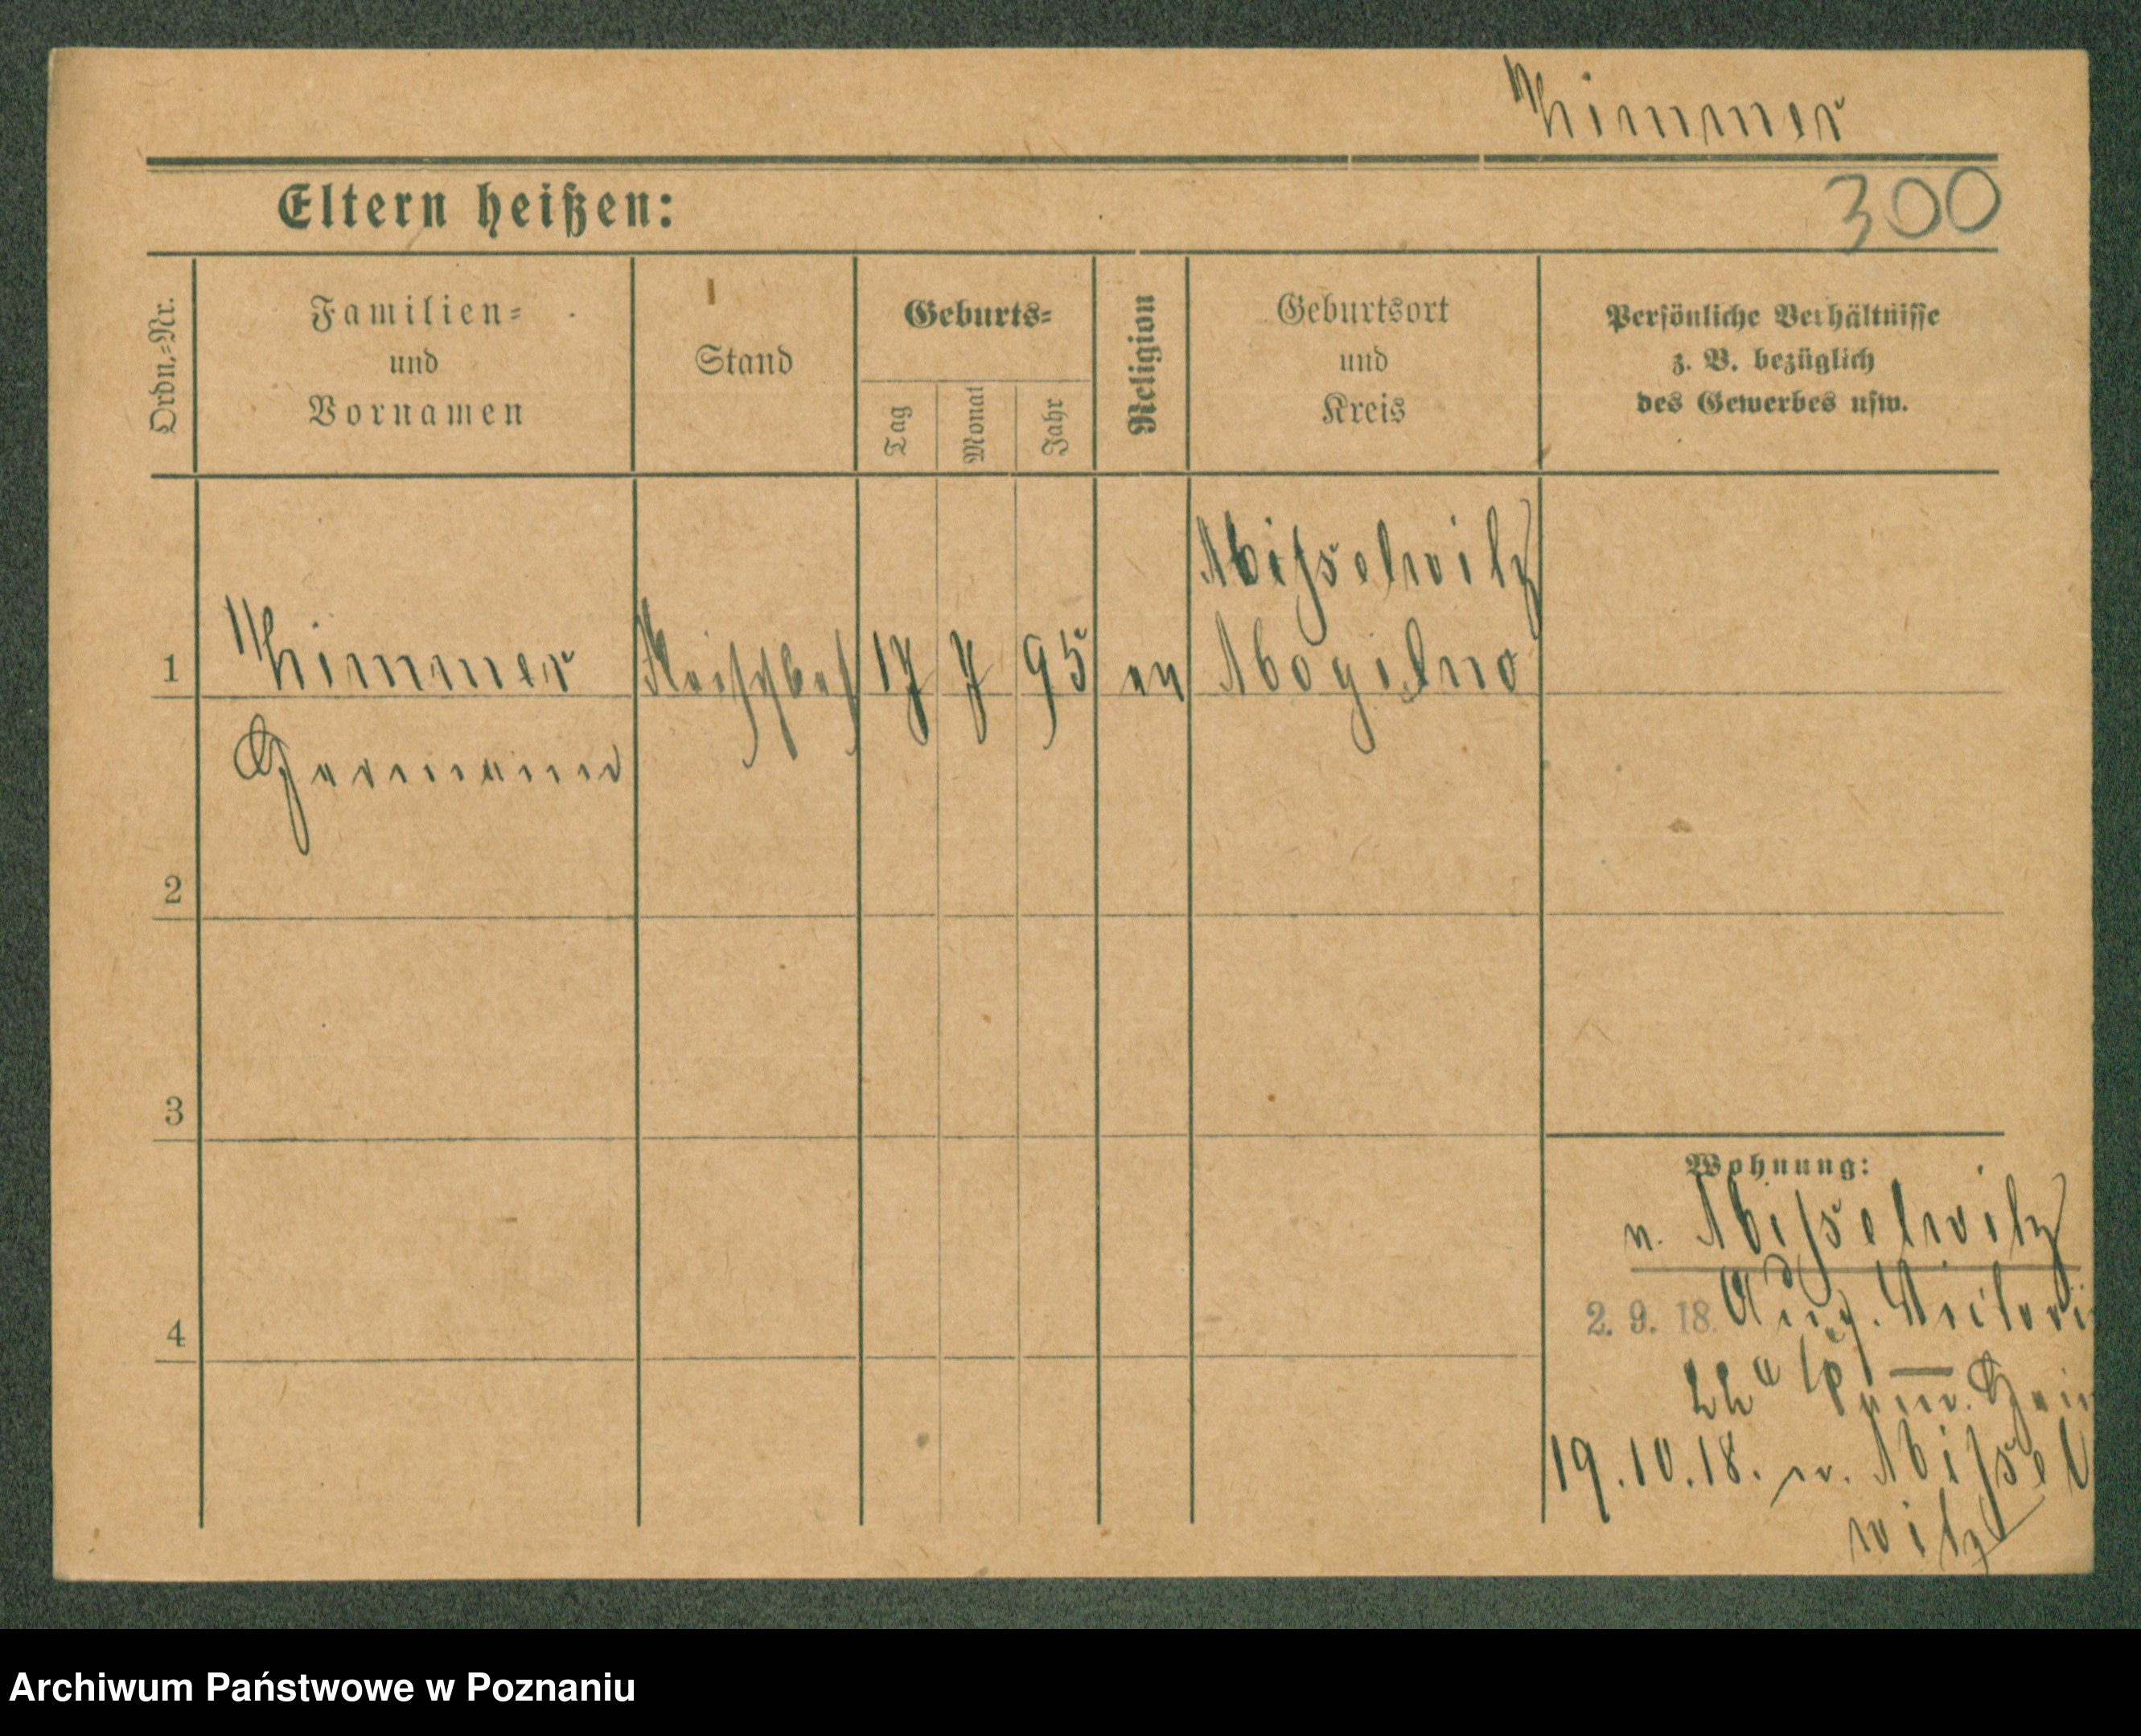 Thimmer
300
Eltern heißen:
Ordn.-Nr.
Familien-
und
Vornamen
Stand
Geburts-
Tag
Monat
Jahr
Religion
Geburtsort
und
Kreis
Persönliche Verhältnisse
z. B. bezüglich
des Gewerbes usw.
Misselwitz
1 Thimmer 17 7 95 ev Mogilno
Hermann
2
3
4
Wohnung:
n. Misselwitz
2. 9. 18. Aug. Victori
19.10.18. n. Missel
witz
Archiwum Państwowe w Poznaniu